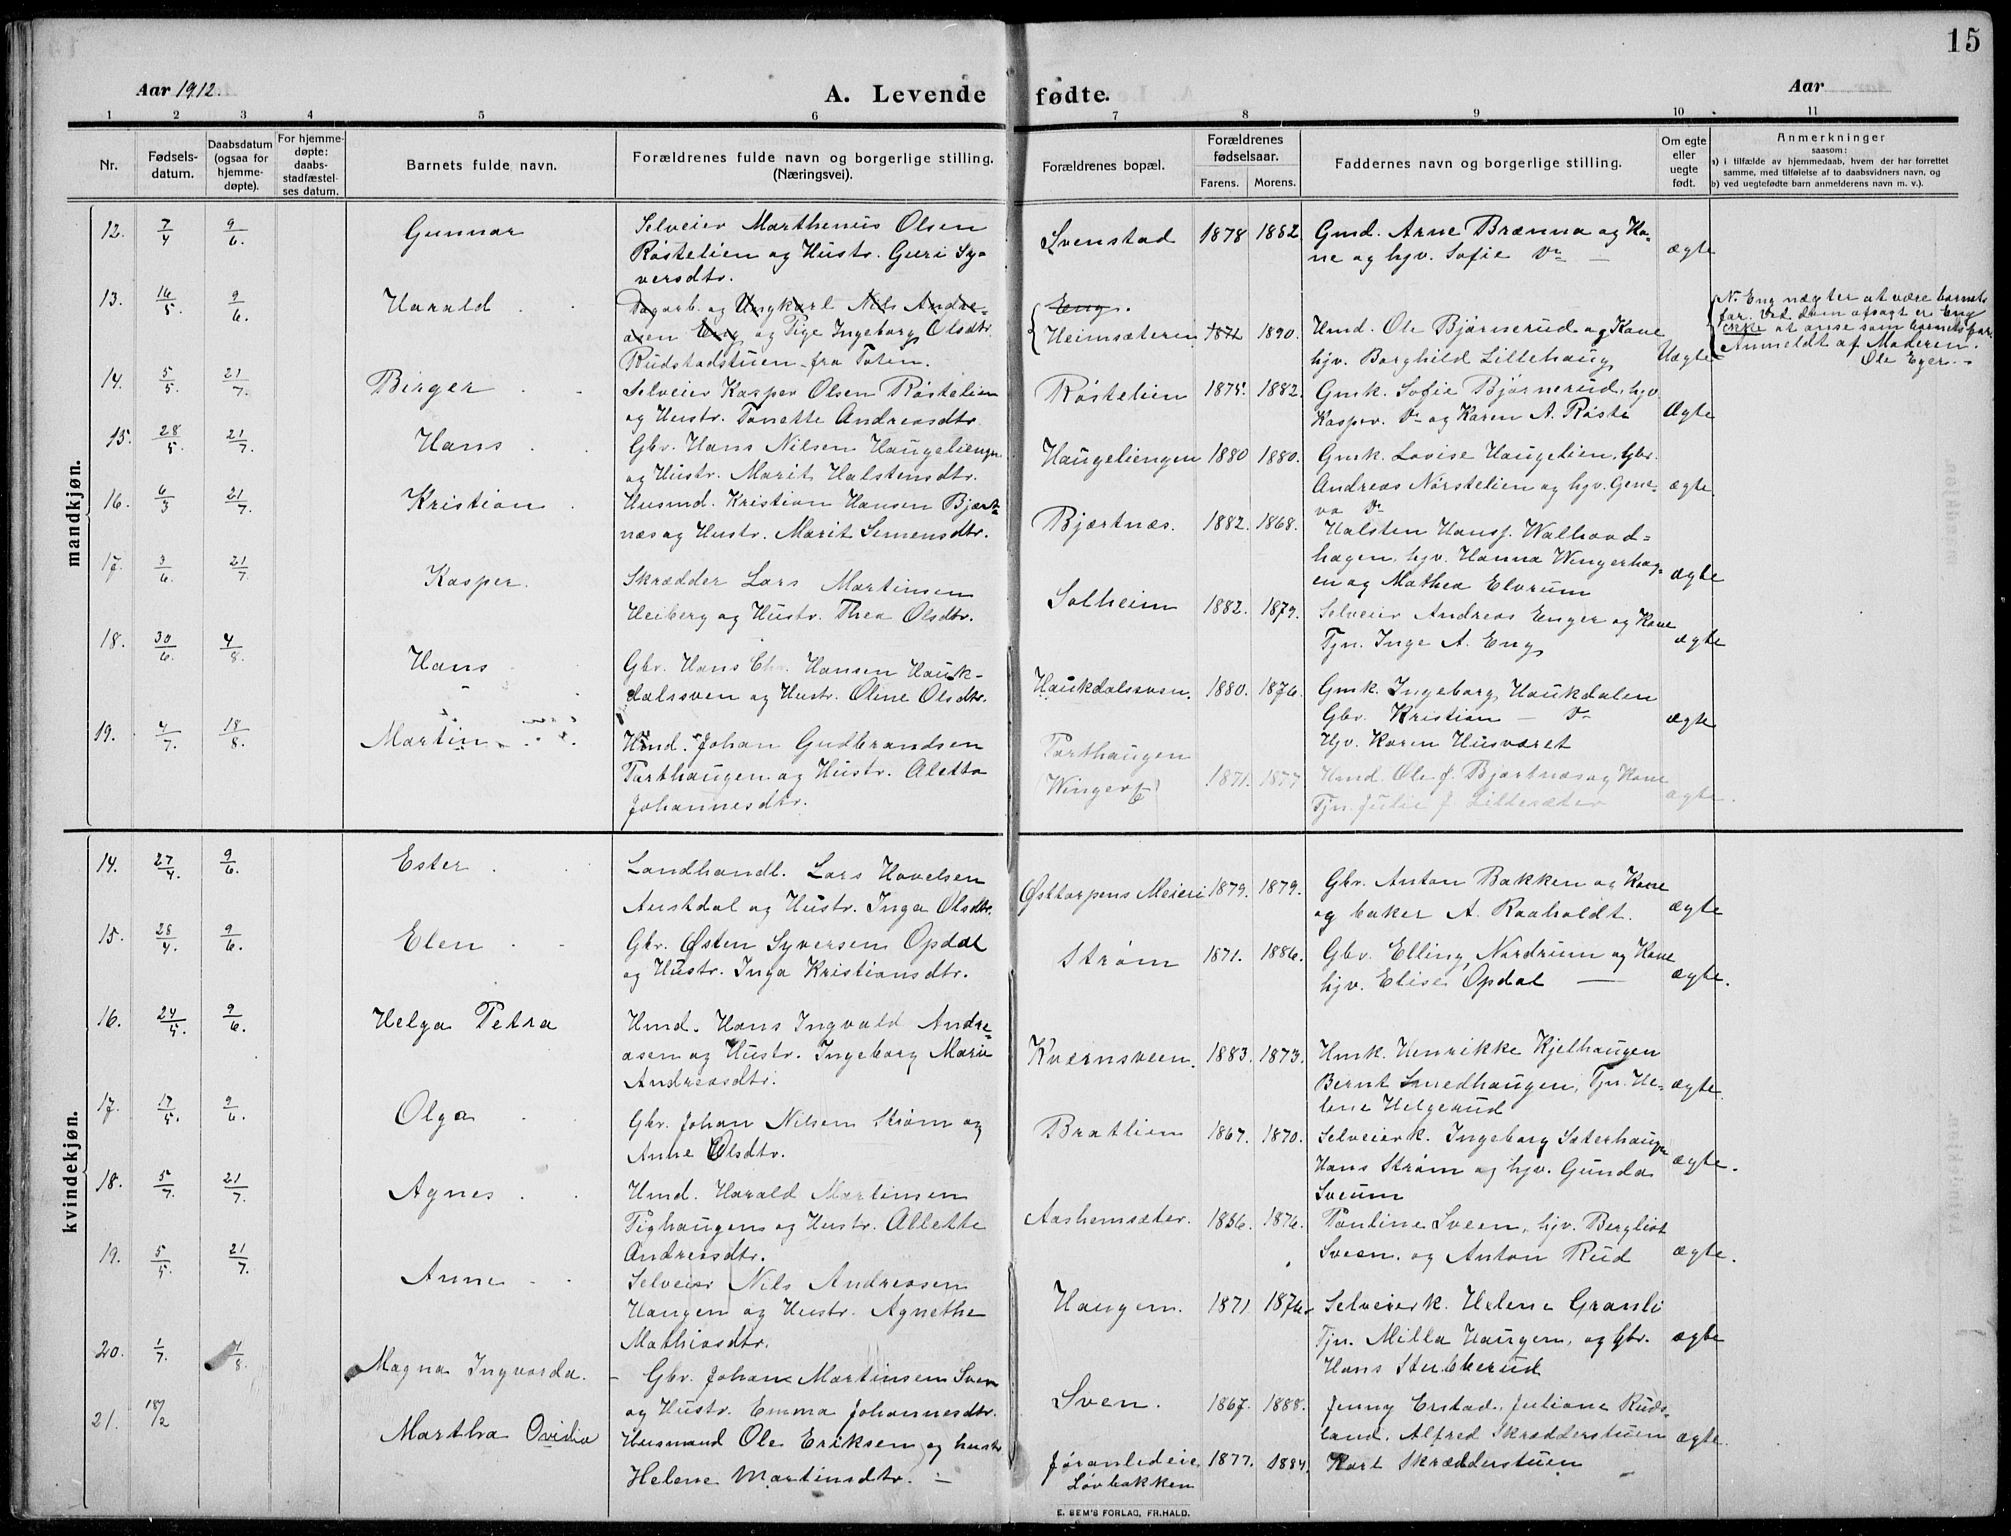 15
Aar 1912.
A. Levende fødte.
Aar
1 2 3 4 5 6 7 8 9 10 11
Nr.
Fødsels-
datum.
Daabsdatum
(ogsaa for
hjemme-
døpte).
For hjemme-
døpte:
daabs-
stadfæstel-
ses datum.
Barnets fulde navn.
Forældrenes fulde navn og borgerlige stilling.
(Næringsvei).
Forældrenes bopæl.
Forældrenes
fødselsaar.
Farens. Morens.
Faddernes navn og borgerlige stilling.
Om egte
eller
uegte
født.
Anmerkninger
saasom:
a) i tilfælde av hjemmedaab, hvem der har forrettet
samme, med tilføielse af to daabsvidners navn, og
b) ved uegtefødte barn anmelderens navn m. v.).
mandkjøn.
12. 7/4 9/6. Gunnar
Selveier Marthenius Olsen
Röstelien og Hustr. Guri Sy-
versdtr.
Svenstad 1878 1882
Gmd. Arne Brænna og Ko-
ne og hjv. Sofie Do —
ægte
13. 16/5 9/6. Harald
Dagarb. og Ungkarl Nils Andre-
asen Eng og Pige Ingeborg Olsdtr.
Rudstadstuen fra Toten.
Eng.
Heimsæteren 1871 1890.
Hmd. Ole Bjørnerud og Kone
hjv. Borghild Lillehaug
Uægte
N. Eng nægter at være barnets
far. Ved dom afsagt er Eng
ikke at anse som barnets far.
Anmeldt af Moderen.
Ole Eger.
14. 5/5. 21/7. Birger
Selveier Kasper Olsen Röstelien
og Hustr. Tonette Andreasdtr.
Röstelien 1875. 1882.
Gmk. Sofie Bjørnerud, hjv.
Kasper. Do og Karen A. Röste
Ægte
15. 28/5. 21/7. Hans
Gbr. Hans Nilsen Haugeliengen
og Hustr. Marit Halstensdtr.
Haugeliengen 1880 1880.
Gmk. Lovise Haugelien, Gbr.
Andreas Nörstelien og hjv. Gene-
va Do
ægte.
16. 6/3 21/7. Kristian
Husmd. Kristian Hansen Bjært-
næs og Hustr. Marit Simensdtr.
Bjærtnæs. 1882. 1868.
Halsten Hansf. Walhovd-
hagen, hjv. Hanna Wingerhag-
en og Mathea Elvrum
ægte
17. 3/6. 21/7. Kasper.
Skrædder Lars Martinsen
Heiberg og Hustr. Thea Olsdtr.
Solheim 1882. 1879.
Selveier Andreas Enger og Kone
Tjn. Inge A. Eng
ægte
18. 30/6. 4/8. Hans
Gbr. Hans Chr. Hansen Hauk-
dalssven og Hustr. Oline Olsdtr.
Haukdalssven. 1880. 1876.
Gmk. Ingeborg Haukdalen
Gbr. Kristian — Do
Hjv. Karen Husværet
ægte
19. 4/7. 18/8. Martin
Hmd. Johan Gudbrandsen
Torthaugen og Hustr. Aletta
Johannesdtr.
Torthaugen
(Winger) 1871. 1877
Hmd. Ole J. Bjærtnæs og Kone
Tjn. Julie J. Lillesæter
ægte.
kvindekjøn.
14. 27/4. 9/6. Ester
Landhandl. Lars Hovelsen
Austdal og Hustr. Inga Olsdtr.
Østtorpens Meieri 1879. 1879.
Gbr. Anton Bakken og Kone
og baker A. Raaholdt.
ægte
15. 28/4. 9/6. Elen
Gbr. Østen Syversen Opdal
og Hustr. Inga Kristiansdtr.
Strøm 1871. 1886.
Gbr. Elling Nordrum og Kone
hjv. Elise Opdal —
ægte.
16. 24/5. 9/6. Helga Petra
Hmd. Hans Ingvald Andre-
asen og Hustr. Ingeborg Marie
Andreasdtr.
Kværnsveen. 1883. 1873.
Hmk. Henrikke Kjelhaugen
Bernt Smedhaugen, Tjn. He-
lene Helgerud
ægte.
17. 17/5. 9/6. Olga
Gbr. Johan Nilsen Strøm og
Anne Olsdtr.
Bratlien 1867. 1870.
Selveierk. Ingeborg Sæterhaugen
Hans Strøm og hjv. Gunda
Sveum
ægte.
18. 5/7. 21/7. Agnes
Hmd. Harald Martinsen
Tighaugen og Hustr. Allette
Andreasdtr.
Aashemsæter. 1886. 1876.
Pauline Sveen, hjv. Bergliot
Sveen. og Anton Rud
ægte.
19. 5/5. 21/7. Anne
Selveier Nils Andreasen
Haugen og Hustr. Agnethe
Mathiasdtr.
Haugen. 1871 1876.
Selveierk. Helene Granli
Tjn. Milla Haugen, og Gbr.
Hans Stubberud
ægte
20. 1/7. 4/8. Magna Ingvarda.
Gbr. Johan Martinsen Sven
og Hustr. Emma Johannesdtr.
Sven. 1867. 1888.
Jenny Erstad, Juliane Ruds-
land. Alfred Skrædderstuen
Karl Skrædderstuen
ægte.
21. 18/2 Martha Ovidia
Husmand Ole Eriksen og hustr.
Helene Martinsdtr. —
Jøranledeie
Løvbakken 1877. 1884.
E. SEM'S FORLAG, FR.HALD.